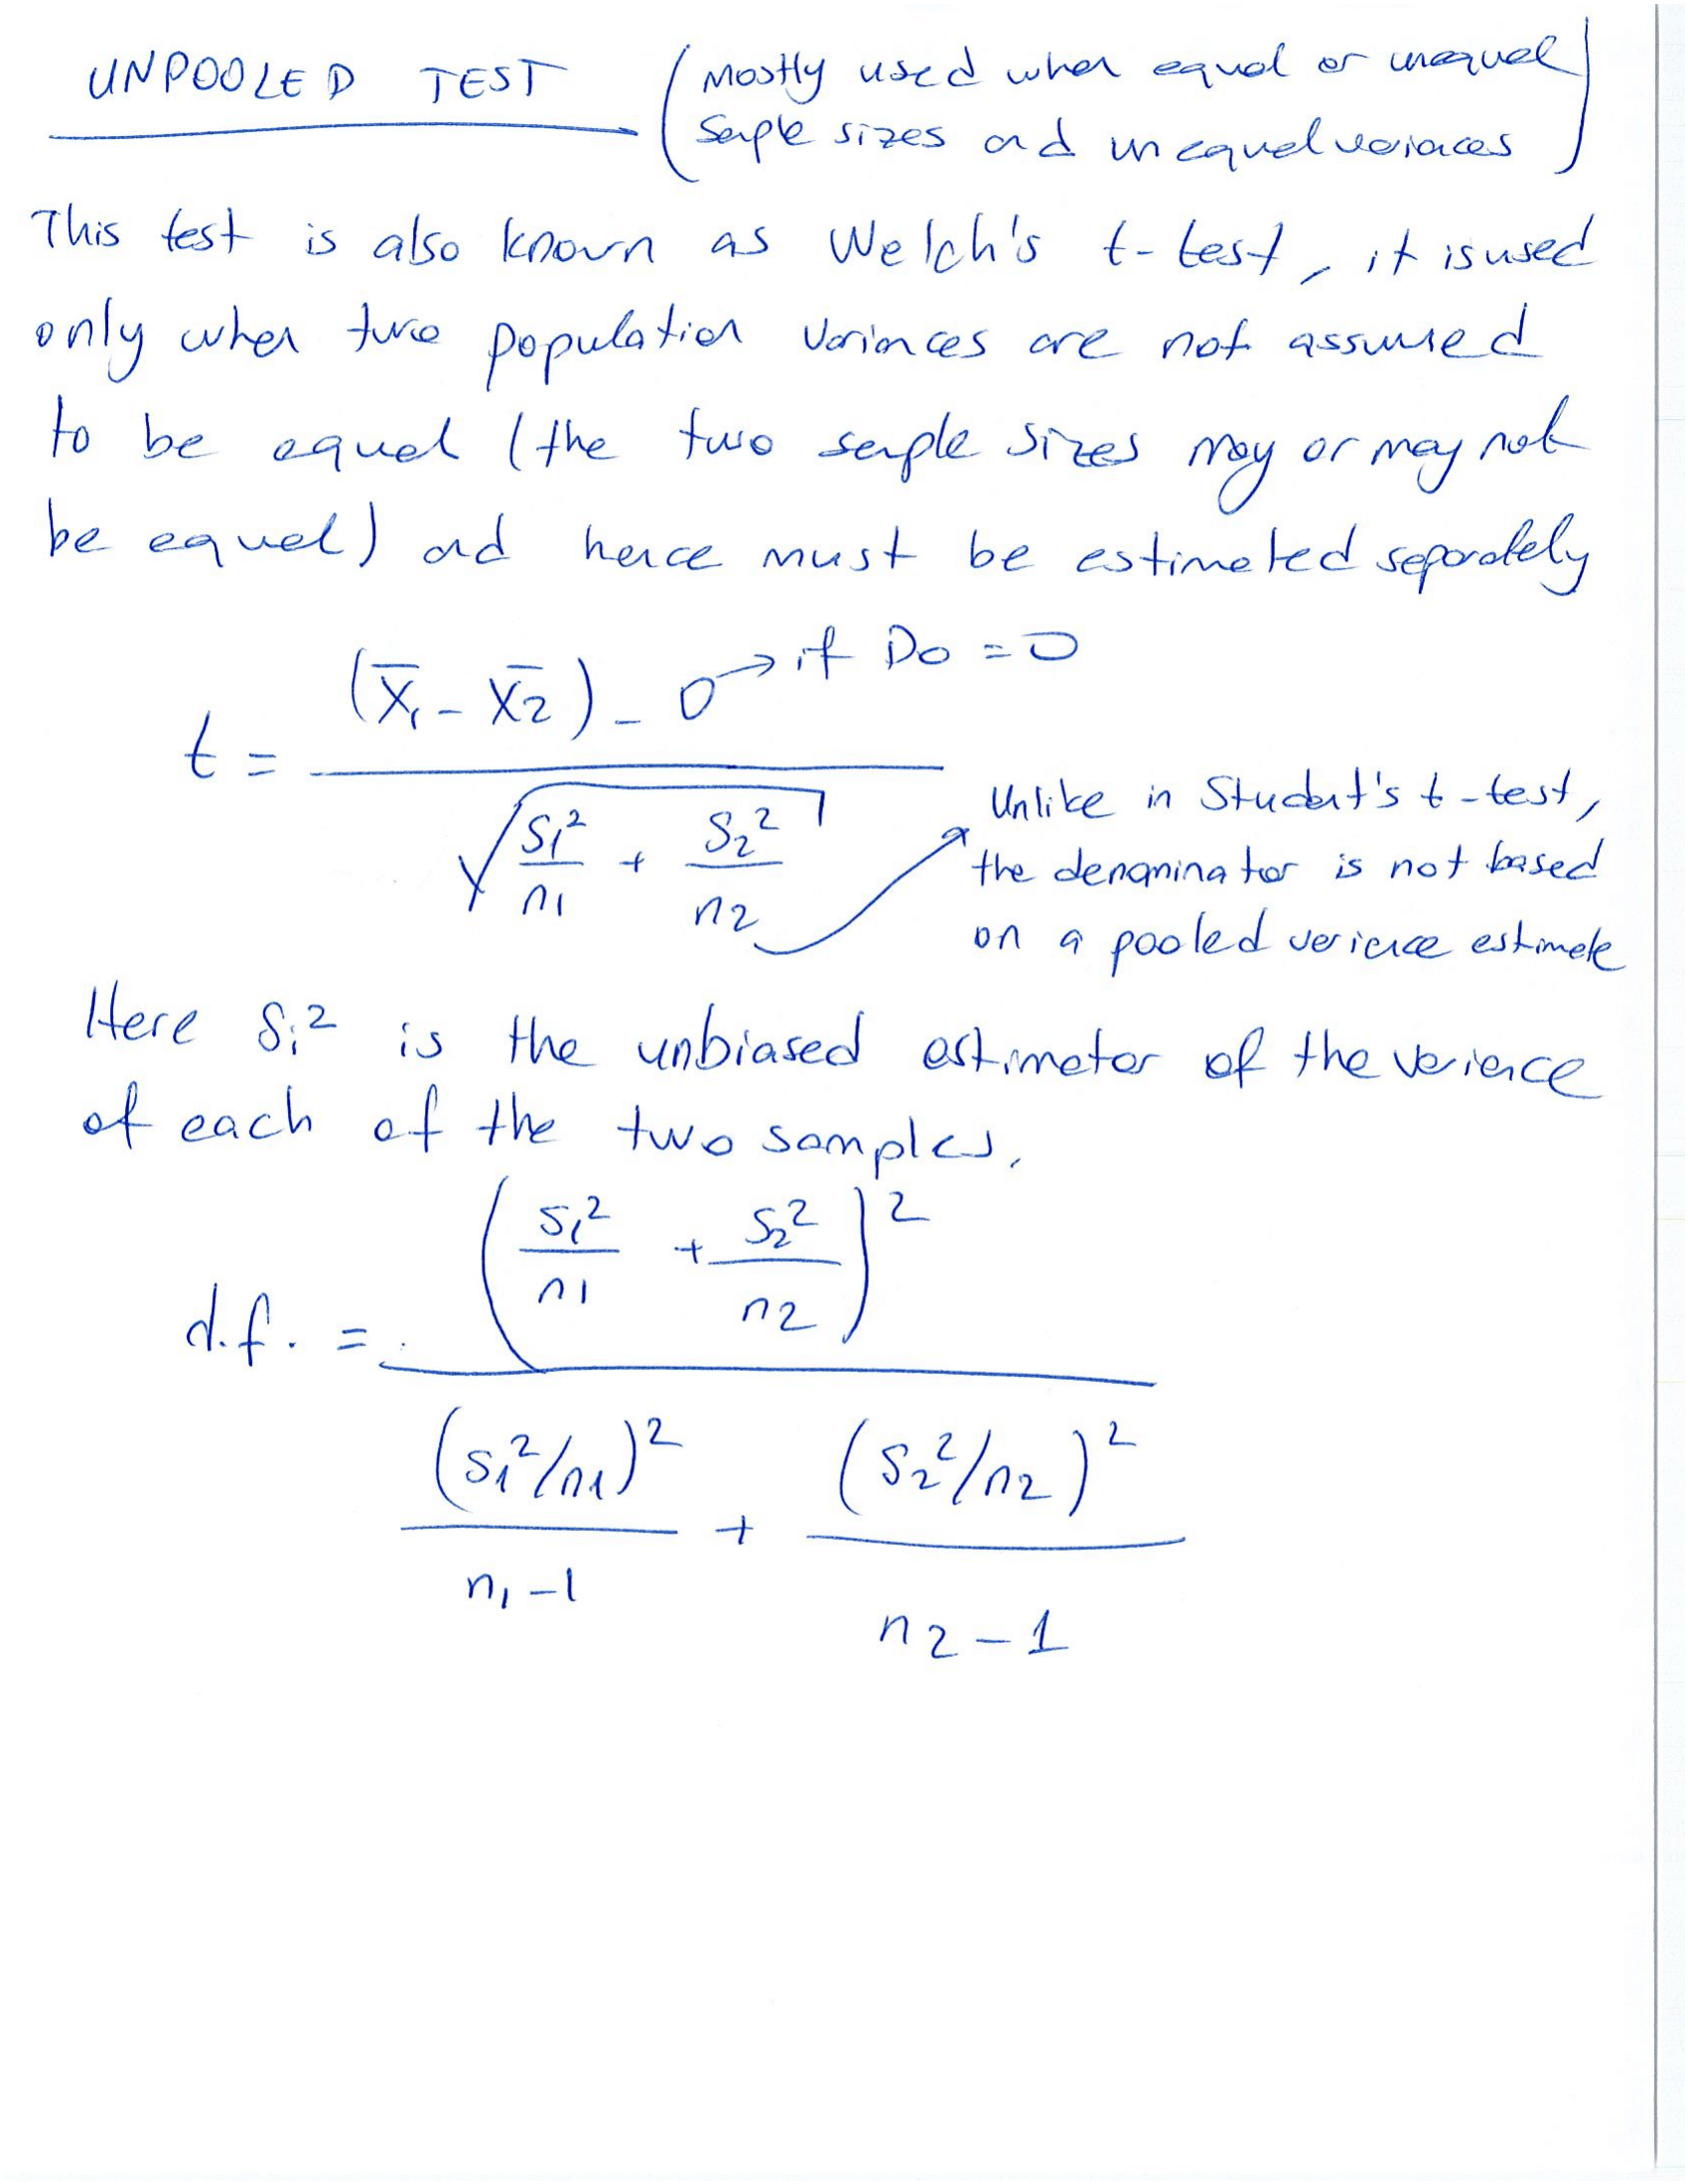 UNPOOLED TEST (Mostly used when equal or unequal
sample sizes and unequal variances)
This test is also known as Welch's t-test, it is used
only when two population variances are not assumed
to be equal (the two sample sizes may or may not
be equal) and hence must be estimated separately
t = ((X̄₁ - X̄₂) - 0) / √(S₁²/n₁ + S₂²/n₂)
→ if D0 = 0
Unlike in Student's t-test,
the denominator is not based
on a pooled variance estimate
Here Sᵢ² is the unbiased estimator of the variance
of each of the two samples.
d.f. = (S₁²/n₁ + S₂²/n₂)² / ((S₁²/n₁)²/(n₁-1) + (S₂²/n₂)²/(n₂-1))